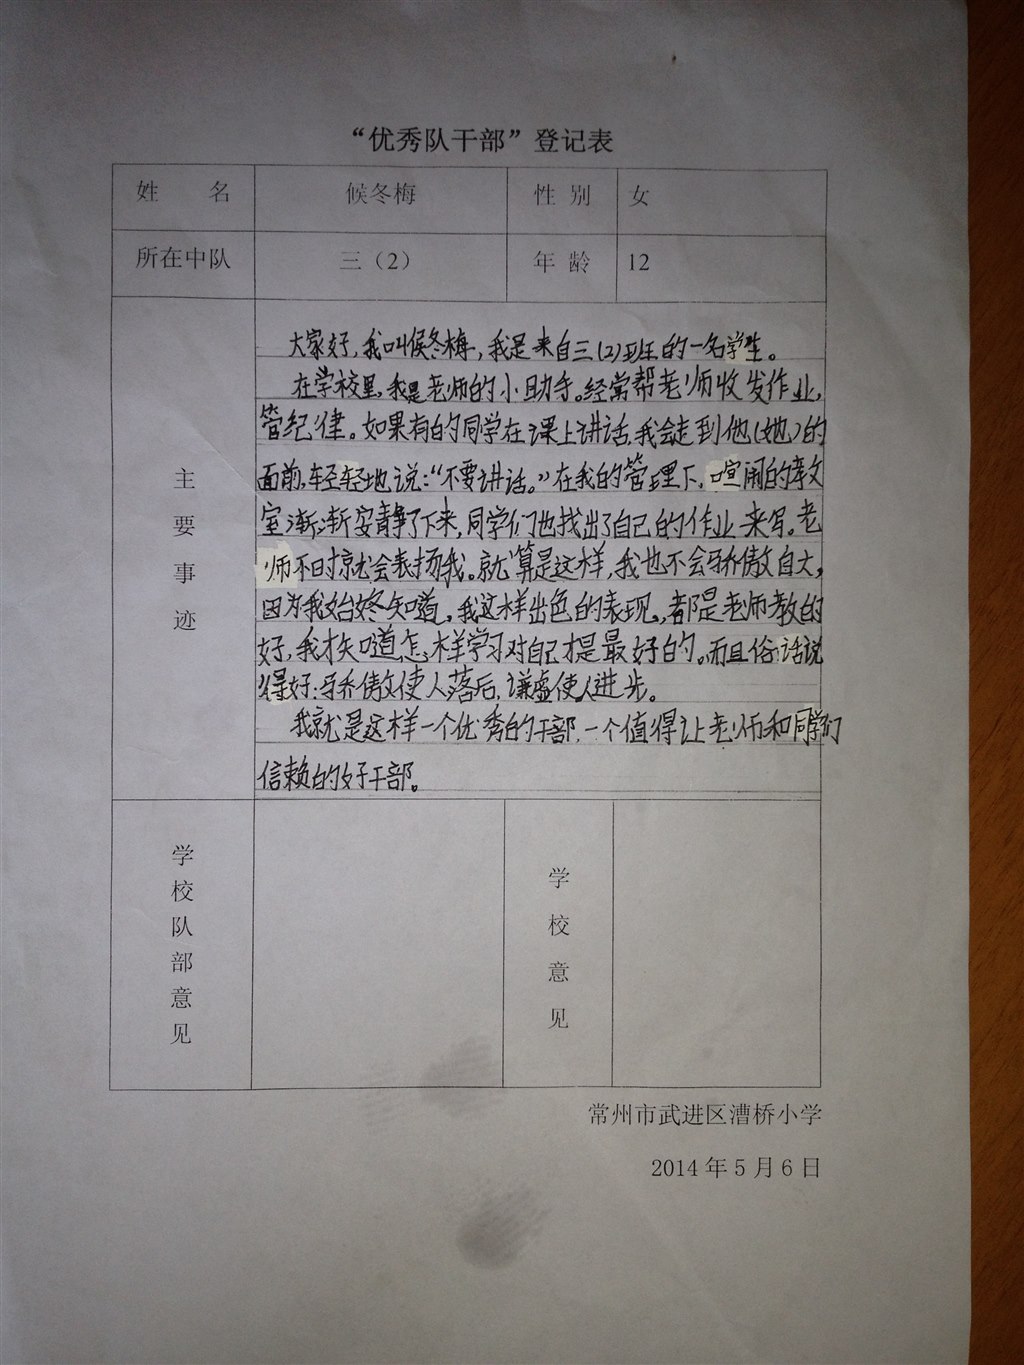 “优秀队干部”登记表
姓 名 候冬梅 性 别 女
所在中队 三（2） 年 龄 12
主要事迹
大家好,我叫候冬梅,我是来自三(2)班的一名学生。
在学校里,我是老师的小助手。经常帮老师收发作业,
管纪律。如果有的同学在课上讲话,我会走到他(她)的
面前,轻轻地说:“不要讲话。”在我的管理下,喧闹的教
室渐渐安静了下来,同学们也找出了自己的作业来写。老
师不时就会表扬我。就算是这样,我也不会骄傲自大,
因为我始终知道,我这样出色的表现,都是老师教的
好,我才知道怎么样学习对自己才是最好的。而且俗话说
得好:骄傲使人落后,谦虚使人进步。
我就是这样一个优秀的干部,一个值得让老师和同学们
信赖的好干部。
学校队部意见
学校意见
常州市武进区漕桥小学
2014年5月6日